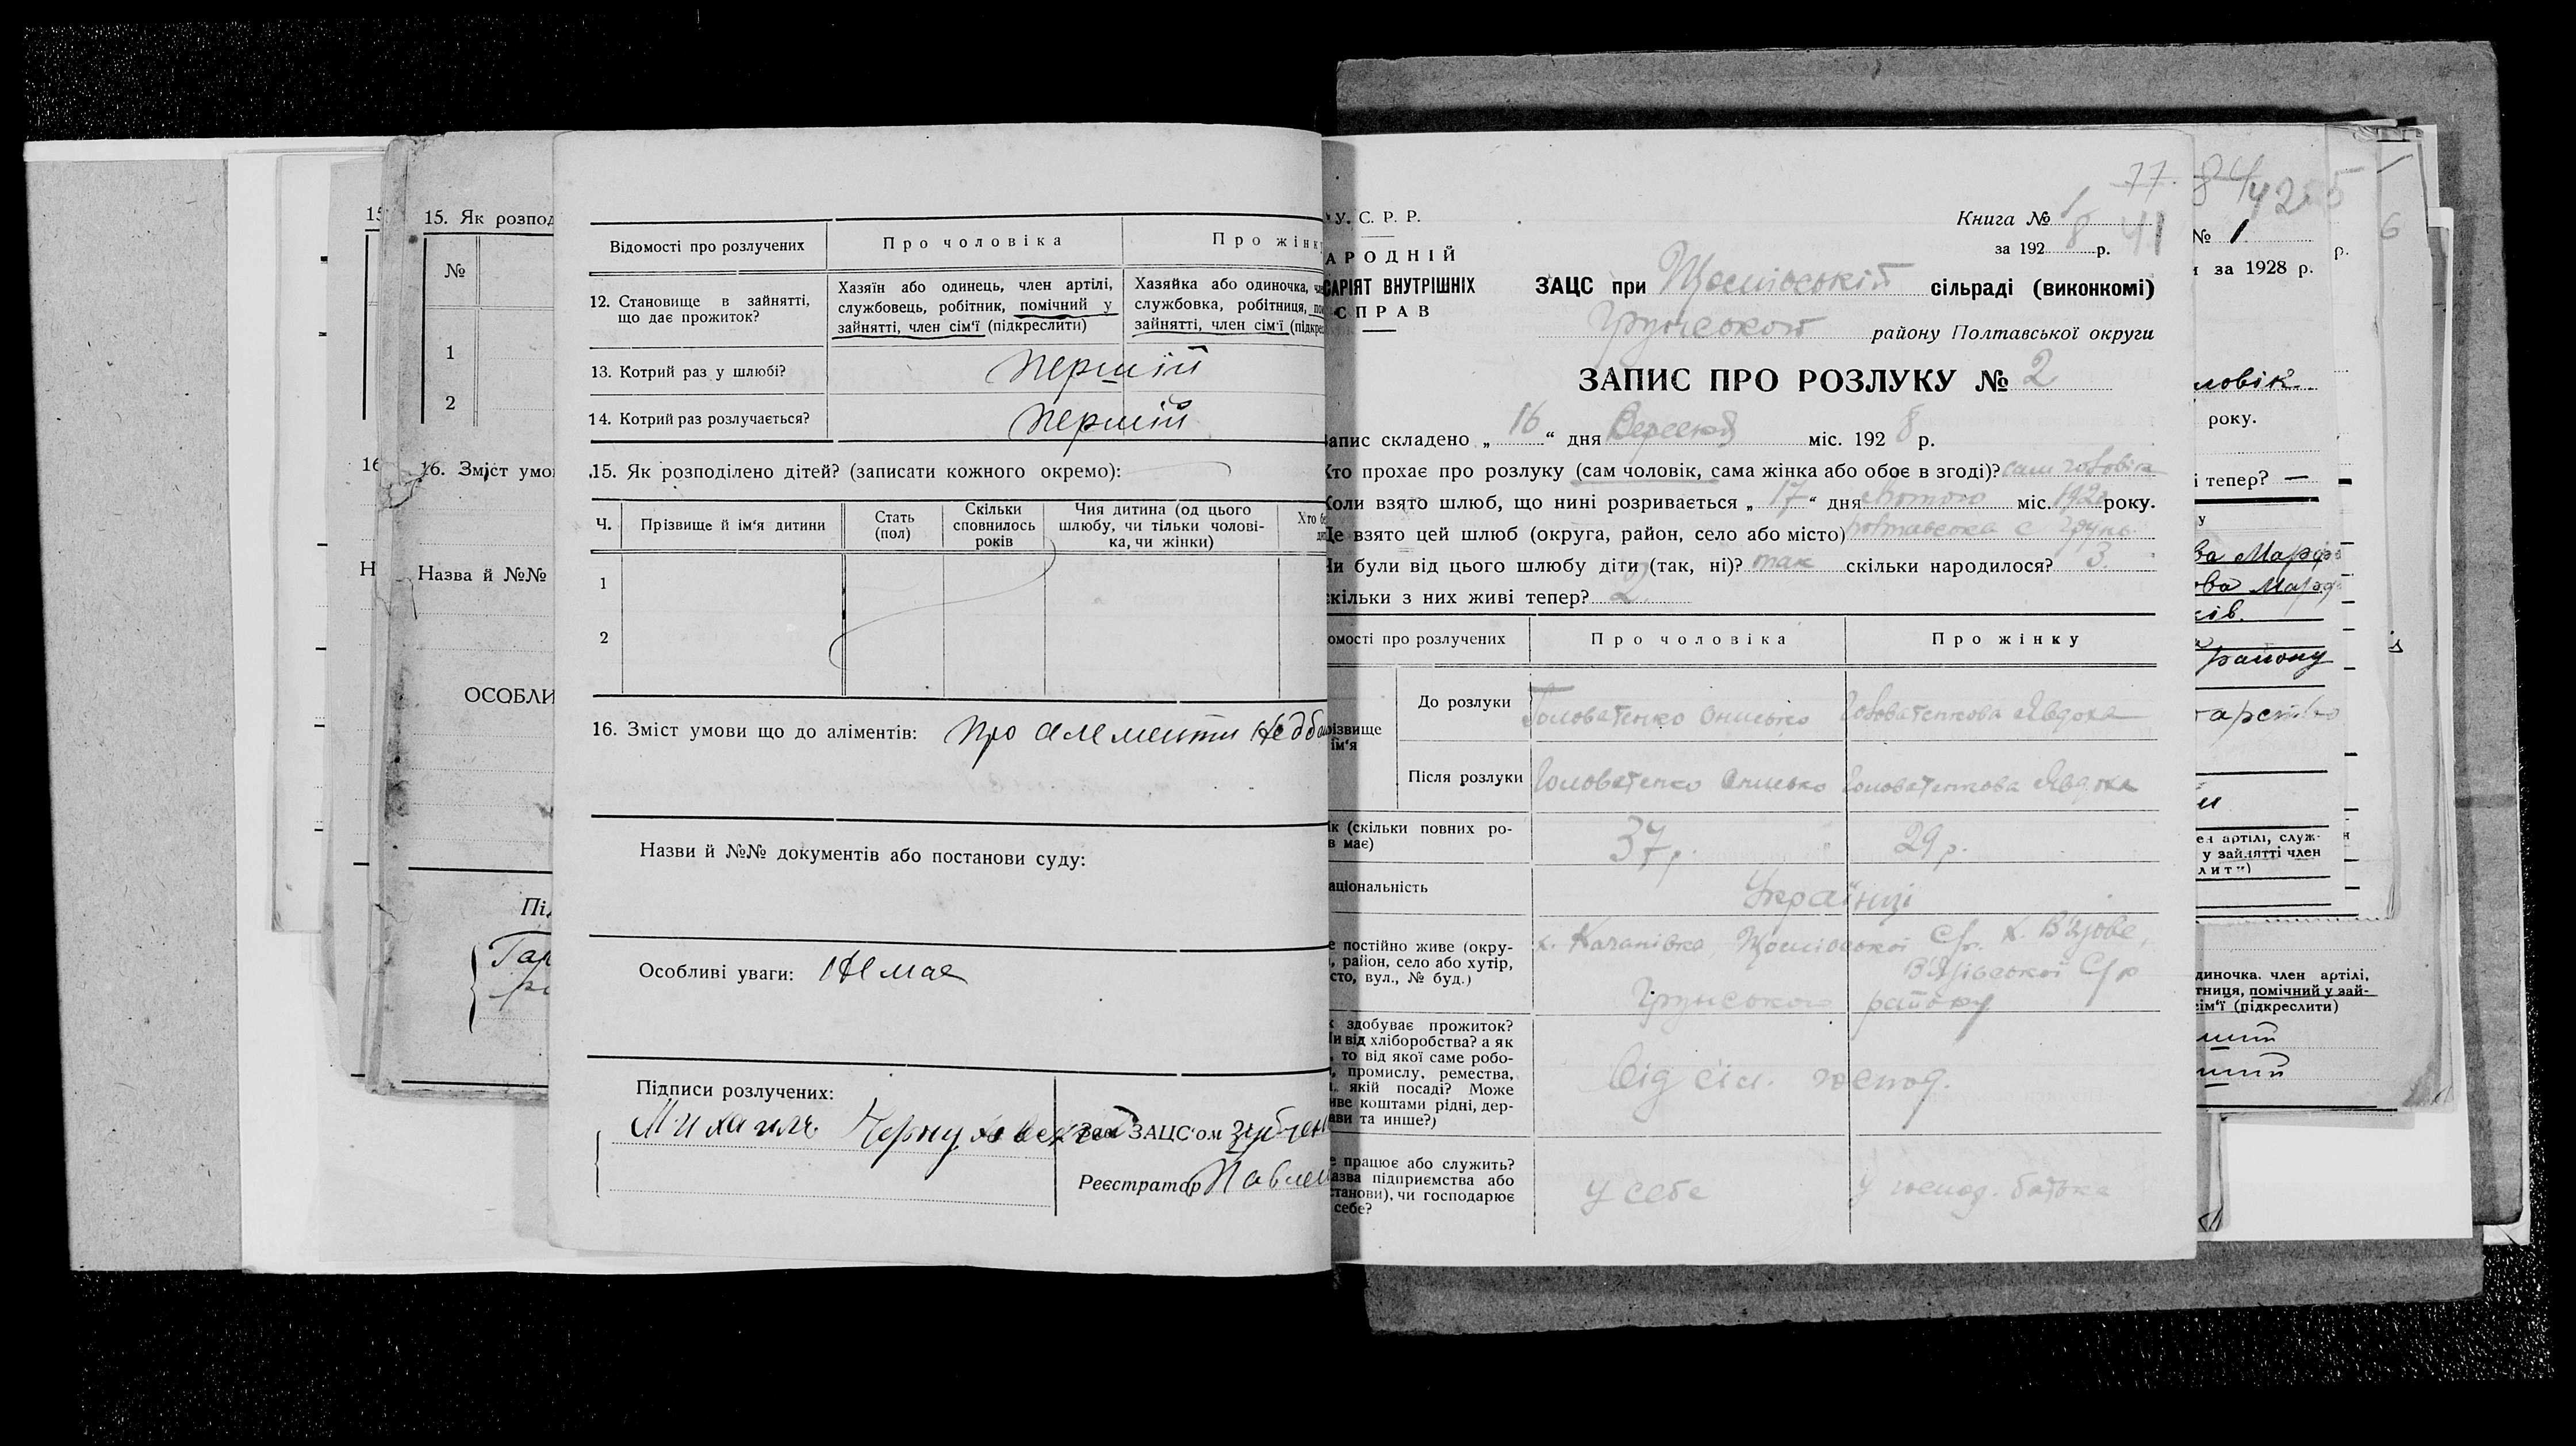 15. Як розпод
№
1
2
16. Зміст умо
Назва й №№
ОСОБЛИ
Відомості про розлучених
Про чоловіка
Про жінк
12. Становище в зайнятті, що дає прожиток?
Хазяїн або одинець, член артілі,
службовець, робітник, помічний у
зайнятті, член сім'ї (підкреслити)
Хазяйка або одиночка,
службовка, робітниця,
зайнятті, член сім'ї
13. Котрий раз у шлюбі?
первий
14. Котрий раз розлучається?
первий
15. Як розподілено дітей? (записати кожного окремо):
Ч.
Прізвище й ім'я дитини
Стать (пол)
Скільки сповнилось років
Чия дитина (од цього шлюбу, чи тільки чолові-ка, чи жінки)
1
2
16. Зміст умови що до аліментів: Про алементи
Назви й №№ документів або постанови суду:
Особливі уваги: Немає
Підписи розлучених:
ЗАЦС'ом
Реєстратор
У. С. Р. Р.
АРОДНІЙ
САРІЯТ ВНУТРІШНІХ
СПРАВ
77.
Книга № 1
за 1928 р.
41
ЗАЦС при сільраді (виконкомі)
Грунського району Полтавської округи
ЗАПИС ПРО РОЗЛУКУ № 2
апис складено „16“ дня Вересня міс. 1928 р.
Хто прохає про розлуку (сам чоловік, сама жінка або обоє в згоді)? сам чоловік
Коли взято шлюб, що нині розривається „17“ дня лютого міс. року.
Де взято цей шлюб (округа, район, село або місто) Полтавська с Грунь
Чи були від цього шлюбу діти (так, ні)? так скільки народилося? 3.
скільки з них живі тепер? 2.
омості про розлучених
Про чоловіка
Про жінку
різвище
ім'я
До розлуки
Головатенко Онисько
Головатенкова Явдоха
Після розлуки
Головатенко Онисько
Головатенкова Явдоха
ік (скільки повних ро-
в має)
37 р.
29 р.
аціональність
Українці
е постійно живе (окру-
, район, село або хутір,
сто, вул., № буд.)
х. Качанівка, С/р.
х. В'язове,
В'язівської С/р
Грунського району
к здобуває прожиток?
и від хліборобства? а як
, то від якої саме робо-
, промислу, ремества,
якій посаді? Може
иве коштами рідні, дер-
ави та инше?)
Від сіл. господ.
е працює або служить?
азва підприємства або
станови), чи господарює
себе?
у себе
у господ. батька
№ 1
за 1928 р.
ловік
року.
і тепер? —
ва Марф
ова Марф
району
ен артілі, служ-
у зайнятті член
диночка. член артілі,
тниця, помічний у зай-
сім'ї (підкреслити)